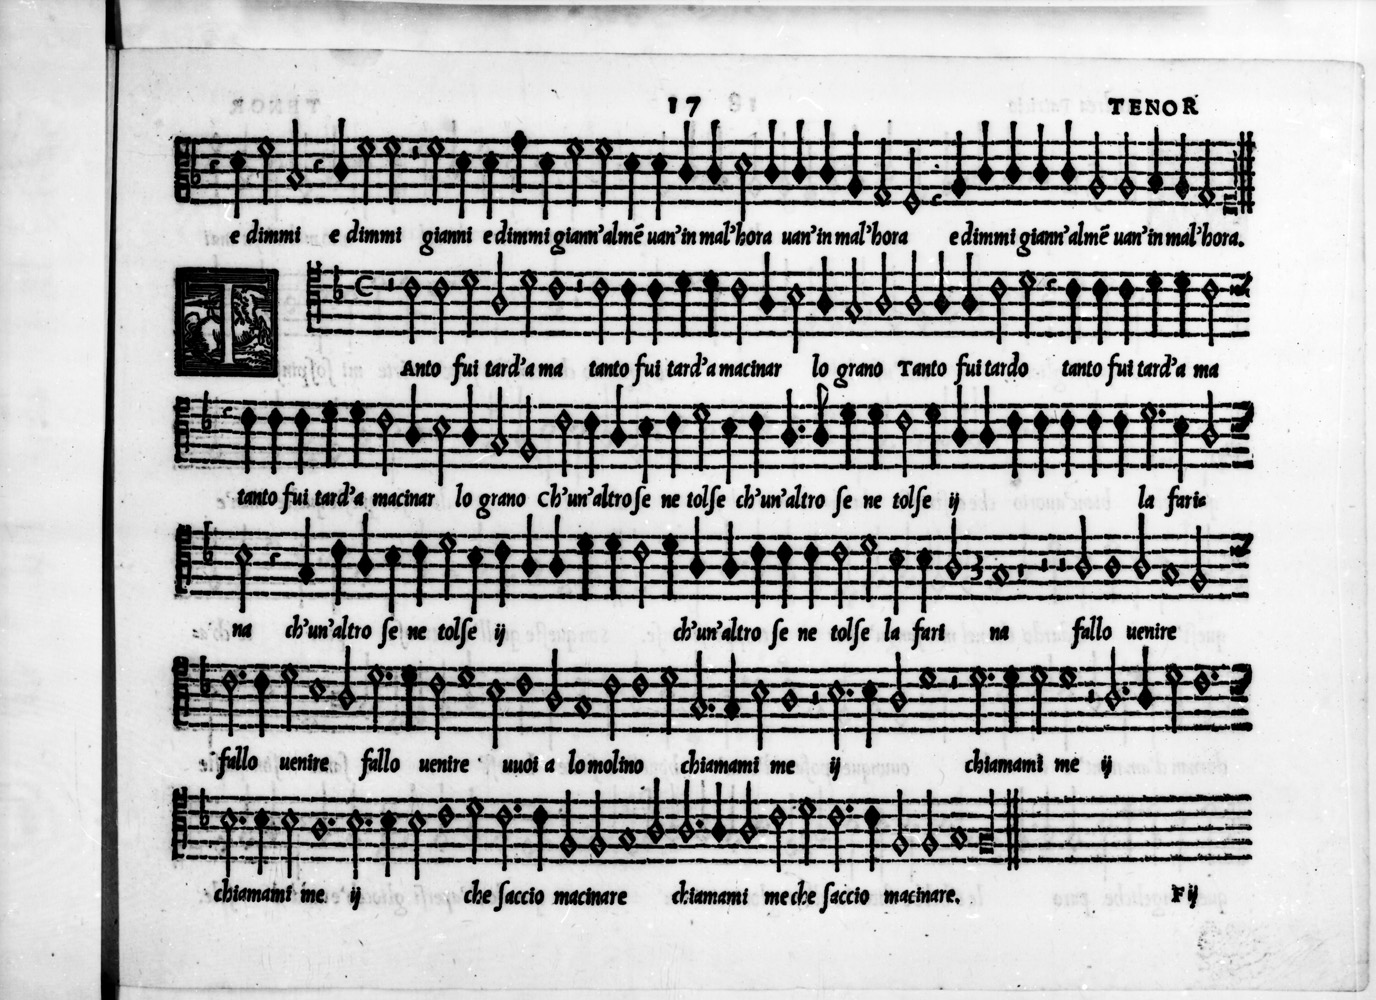 17 TENOR
e dimmi e dimmi gianni e dimmi giann'almē uan'in mal'hora uan'in mal'hora e dimmi giann'almē uan'in mal'hora.
TAnto fui tard'a ma tanto fui tard'a macinar lo grano Tanto fui tardo tanto fui tard'a ma
tanto fui tard'a macinar lo grano Ch'un'altro ſe ne tolſe ch'un'altro ſe ne tolſe ij la faria
na ch'un'altro ſe ne tolſe ij ch'un'altro ſe ne tolſe la fari na fallo uenire
fallo uenire fallo uenire uuoi a lo molino chiamami me ij chiamami me ij
chiamami me ij che ſaccio macinare chiamami me che ſaccio macinare.
F ij